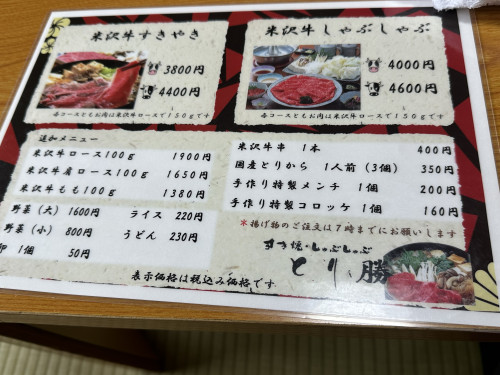 米沢牛すきやき
3800円
4400円
各コースともお肉は米沢牛ロースで150gです
米沢牛しゃぶしゃぶ
4000円
4600円
各コースともお肉は米沢牛ロースで150gです
追加メニュー
米沢牛ロース100g 1900円
米沢牛肩ロース100g 1650円
米沢牛もも100g 1380円
野菜（大）1600円 ライス 220円
野菜（小）800円 うどん 230円
卵 1個 50円
米沢牛串 1本 400円
国産とりから 1人前（3個）350円
手作り特製メンチ 1個 200円
手作り特製コロッケ 1個 160円
※揚げ物のご注文は7時までにお願いします
すき焼・しゃぶしゃぶ
とり勝
表示価格は税込み価格です